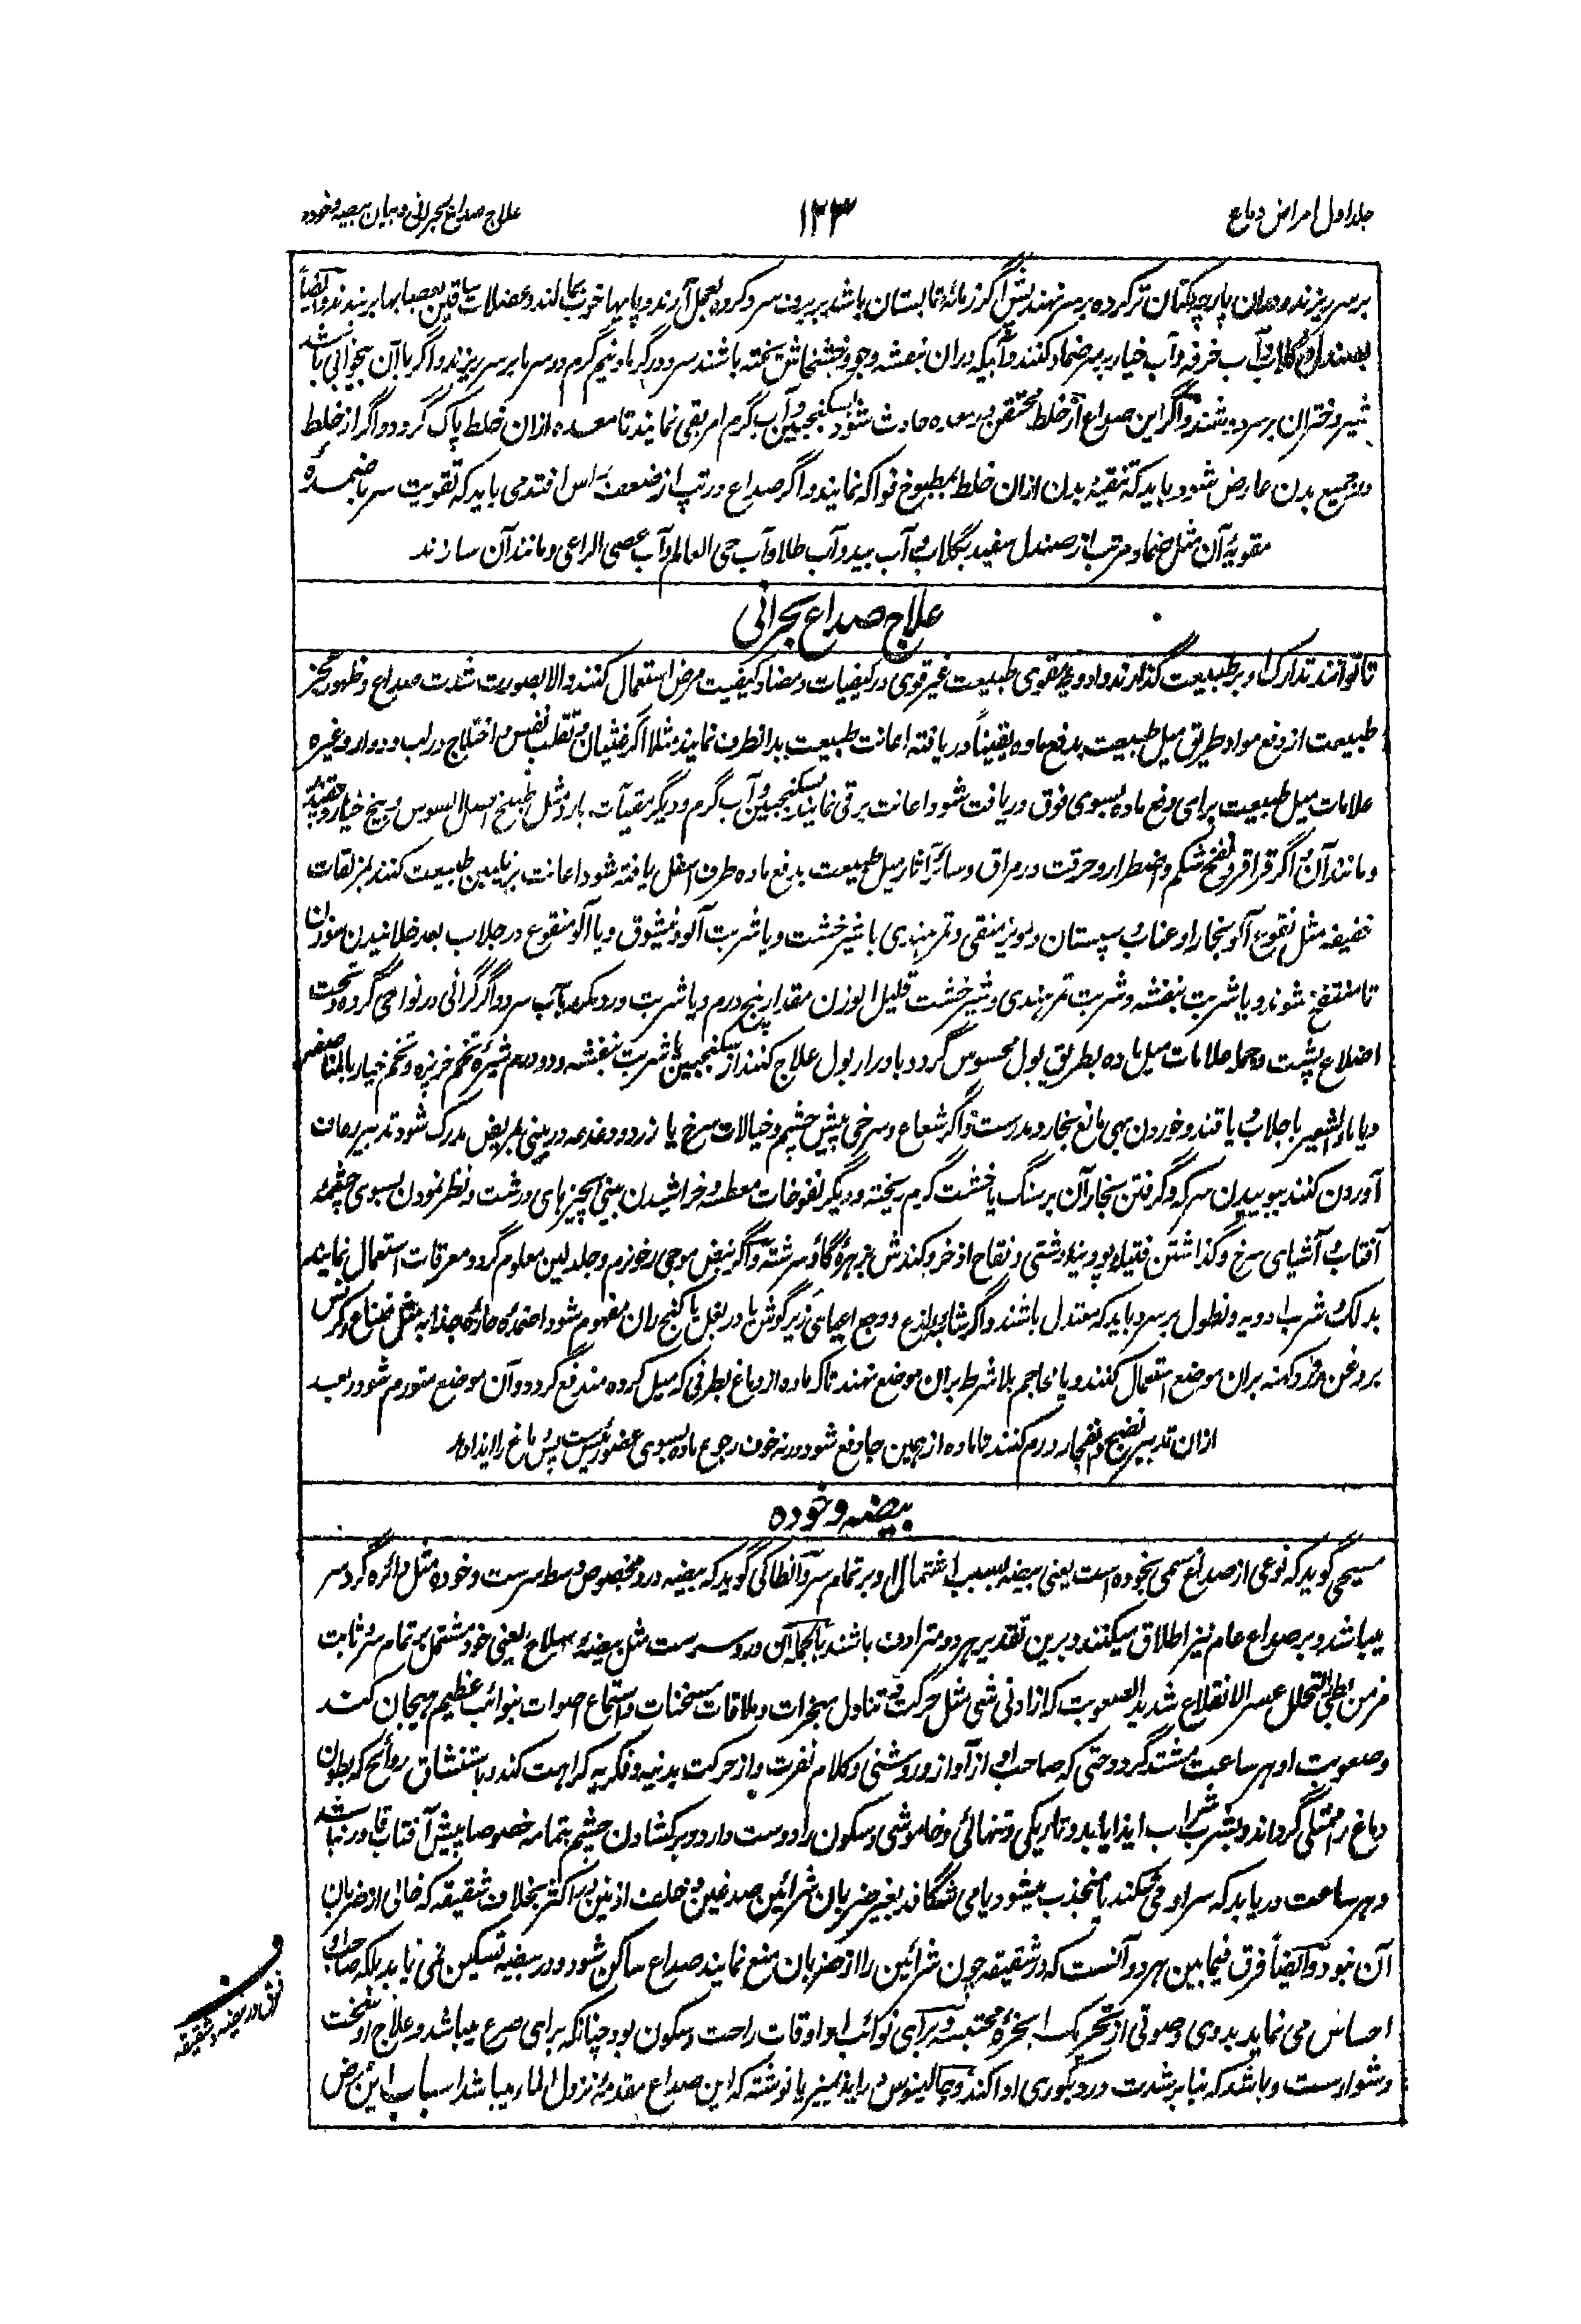 جلد اول امراض دماغ
۱۲۳
علاج صداع بحرانی و بیان بیضه و خوده
بر سر ریزند و دران پارچه کتان تر کرده بر سر نهند لیکن اگر زمانۀ تابستان باشد بیرون سرد کرده بعمل آرند و پایها خوب بمالند و عضلات ساقین بعصابها بربندند و ایضاً
بصندل و گلاب و آب خرفه و آب خیار بر سر ضماد کنند و آبیکه دران بنفشه و جو و خشخاش پخته باشند سرد در گرما و نیم گرم در سرما بر سر ریزند و اگر با آن بیخوابی باشد
شیر دختران بر سر دوشند و اگر این صداع از خلط محتقن در معده حادث شود بسکنجبین و آب گرم امر بقی نمایند تا معده ازان خلط پاک گردد و اگر از خلط
در جمیع بدن عارض شود باید که تنقیۀ بدن ازان خلط بمطبوخ فواکه نمایند و اگر صداع در تپ از ضعف راس افتد می باید که تقویت سر باضمدۀ
مقویۀ آن مثل ضماد مرتب از صندل سفید بگلاب و آب بید و آب طلا و آب حی العالم و آب عصی الراعی و مانند آن سازند
علاج صداع بحرانی
تا توانند تدارک او بر طبیعت گذارند و ادویۀ مقوی طبیعت غیر قوی در کیفیات و مضاد کیفیت مرض استعمال کنند والا بصورت شدت صداع و ظهور عجز
طبیعت از دفع مواد طریق میل طبیعت بدفع ماده یقیناً دریافته اعانت طبیعت بدانطرف نمایند مثلا اگر غثیان و تقلب نفس و اختلاج در لب و دوار و غیره
علامات میل طبیعت برای دفع ماده بسوی فوق دریافت شود اعانت بر قی نمایند بسکنجبین و آب گرم و دیگر مقیآت بارد مثل طبیخ اصل السوس و بیخ خیار
و مانند آن و اگر قراقر و نفخ شکم و اضطرار و حرقت در مراق و سائر آثار میل طبیعت بدفع ماده طرف اسفل یافته شود اعانت بر تلیین طبیعت کنند بمزلقات
خفیفه مثل نقوع آلو بخارا و عناب و سپستان و مویز منقی و تمر هندی با شیرخشت و یا شربت آلو و یا آلو منقوع در جلاب بعد خلانیدن سوزن
تا منتفخ شوند و یا شربت بنفشه و شربت تمر هندی و شیرخشت قلیل الوزن مقدار پنج درم و یا شربت ورد مکرر بآب سرد و اگر گرانی در نواحی گرده و تحت
اضلاع پشت و جمله علامات میل ماده بطریق بول محسوس گردد بادرار بول علاج کنند از سکنجبین یا شربت بنفشه و دو درهم شیرۀ تخم خرپزه و تخم خیار بالمناصفه
و یا ماءالشعیر با جلاب یا قند و خوردن بهی مانع بخار و مدرست و اگر شعاع و سرخی پیش چشم و خیالات سرخ یا زرد و دغدغه در بینی بمریض مدرک شود تدبیر رعاف
آوردن کنند ببوییدن سرکه و گرفتن بخار آن بر سنگ یا خشت گرم ریخته و دیگر نفوخات معطسه و خراشیدن بینی بچیزهای درشت و نظر نمودن بسوی چشمۀ
آفتاب و اشیای سرخ و گذاشتن فتیله پودینۀ دشتی و نقاح اذخر و کندش بزهرۀ گاؤ سرشته و اگر نبض موجی رخو نرم و جلد لین معلوم گردد معرقات استعمال نمایند
بدلک و شرب ادویه و نطول بر سر و باید که معتدل باشند و اگر لذع و وجع اعیائی زیر گوش یا در بغل یا کنج ران مفهوم شود اضمدۀ حادۀ جذابه مثل نعناع و کرفس
بروغن کهنه بران موضع استعمال کنند و یا محاجم بلا شرط بران موضع نهند تا که ماده از دماغ بطرفی که میل کرده مندفع گردد و آن موضع متورم شود و بعد
ازان تدبیر نضج و انفجار ورم کنند تا ماده از همین جا دفع شود ورنه خوف رجوع ماده بسوی عضو رئیس ست پس دماغ را ایذا دهد
بیضه و خوده
مسیحی گوید که نوعی از صداع مسمی بخوده است یعنی بیضه بسبب اشتمال او بر تمام سر و انطاکی گوید که بیضه درد مخصوص وسط سرست و خوده مثل دائره گرد سر
میباشد و بر صداع عام نیز اطلاق میکنند و برین تقدیر هر دو مترادف باشند بالجمله آن درد سرست مثل بیضۀ سلاح یعنی خود مشتمل بر تمام سر و ثابت
مزمن بطئ التحلل عسر الانقلاع شدید الصعوبت که از ادنی شی مثل حرکت و تناول مبخرات و ملاقات مسخنات و استماع اصوات بنوائب عظیم هیجان کند
و صعوبت او هر ساعت مشتد گردد حتی که صاحب او از آواز و روشنی و کلام نفرت و از حرکت بدنیه و فکریه کراهت کند و باستنشاق روائح که بطون
دماغ را ممتلی گرداند و بشرب شراب ایذا یابد و تاریکی و تنهائی و خاموشی و سکون را دوست دارد و بر کشادن چشم بتمامه خصوصا پیش آفتاب قادر نباشد
و هر ساعت دریابد که سر او می شکند یا منجذب میشود یا می شگافد بغیر ضربان شرائین صدغین و خلف اذنین در اکثر بخلاف شقیقه که خالی از ضربان
آن نبود و ایضاً فرق فیمابین هر دو آنست که در شقیقه چون شرائین را از ضربان منع نمایند صداع ساکن شود و در بیضه تسکین نمی یابد بلکه صاحب او
احساس می نماید بدوی و صوتی از تحریک ابخرۀ محتبسه و برای نوائب او اوقات راحت و سکون بود چنانکه برای صرع میباشد و علاج او سخت
دشوارست و باشد که بنا بر شدت درد بکوری ادا کند و جالینوس در اپیذیمیا نوشته که این صداع مقدمۀ نزول الماء میباشد اسباب این مرض
ف
فرق در بیضه و شقیقه